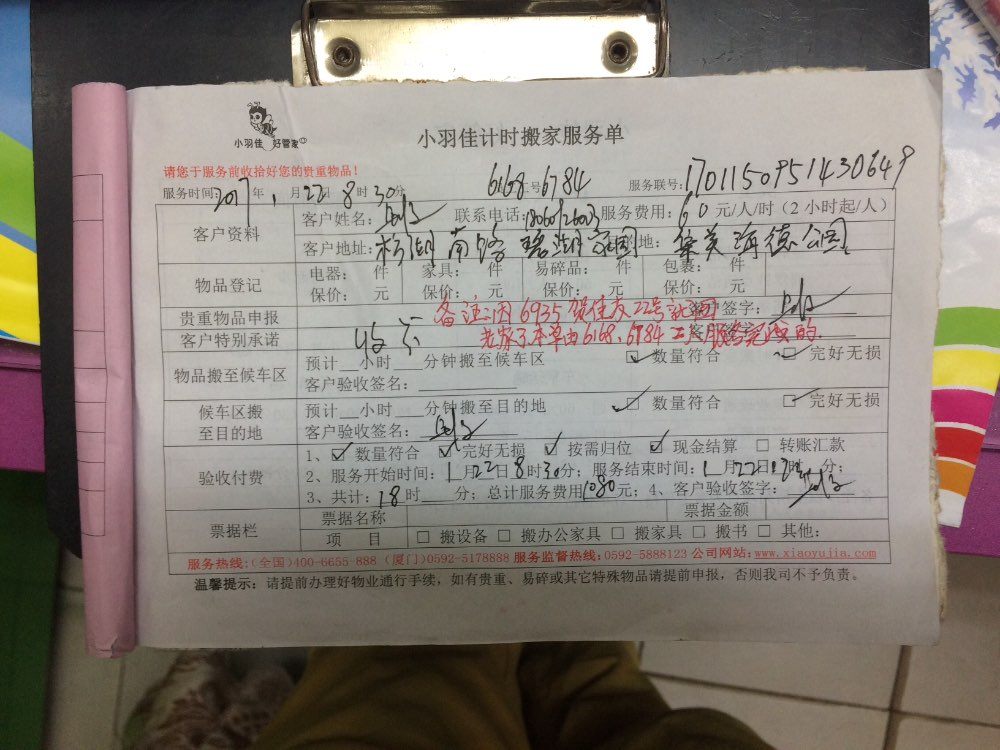 小羽佳 好管家
小羽佳计时搬家服务单
请您于服务前收拾好您的贵重物品!
服务时间: 2017年 1月 22日 8时 30分 6168 工号: 6784 服务联号: 170115095143064 9
客户资料 客户姓名: 联系电话: 服务费用: 60元/人/时(2小时起/人)
客户地址: 杨湖南路 碧湖家园 地: 华美海德公园
物品登记 电器: 件 家具: 件 易碎品: 件 包裹: 件
保价: 元 保价: 元 保价: 元 保价: 元
贵重物品申报 客户签字:
备注:因6935贺佳友22号
客户特别承诺 老家了本单由6168、6784工人服务完成的.
物品搬至候车区 预计__小时__分钟搬至候车区 ☑ 数量符合 ☑ 完好无损
客户验收签名:
候车区搬至目的地 预计__小时__分钟搬至目的地 ☑ 数量符合 ☑ 完好无损
客户验收签名:
验收付费 1、☑ 数量符合 ☑ 完好无损 ☑ 按需归位 ☑ 现金结算 □ 转账汇款
2、服务开始时间: 1月22日8时30分; 服务结束时间: 1月22日17时 分;
3、共计: 18时 分; 总计服务费用1080元; 4、客户验收签字:
票据栏 票据名称 票据金额
项 目 □ 搬设备 □ 搬办公家具 □ 搬家具 □ 搬书 □ 其他:
服务热线:(全国)400-6655 888 (厦门)0592-5178888 服务监督热线:0592-5888123 公司网站:www.xiaoyujia.com
温馨提示: 请提前办理好物业通行手续, 如有贵重、易碎或其它特殊物品请提前申报, 否则我司不予负责。